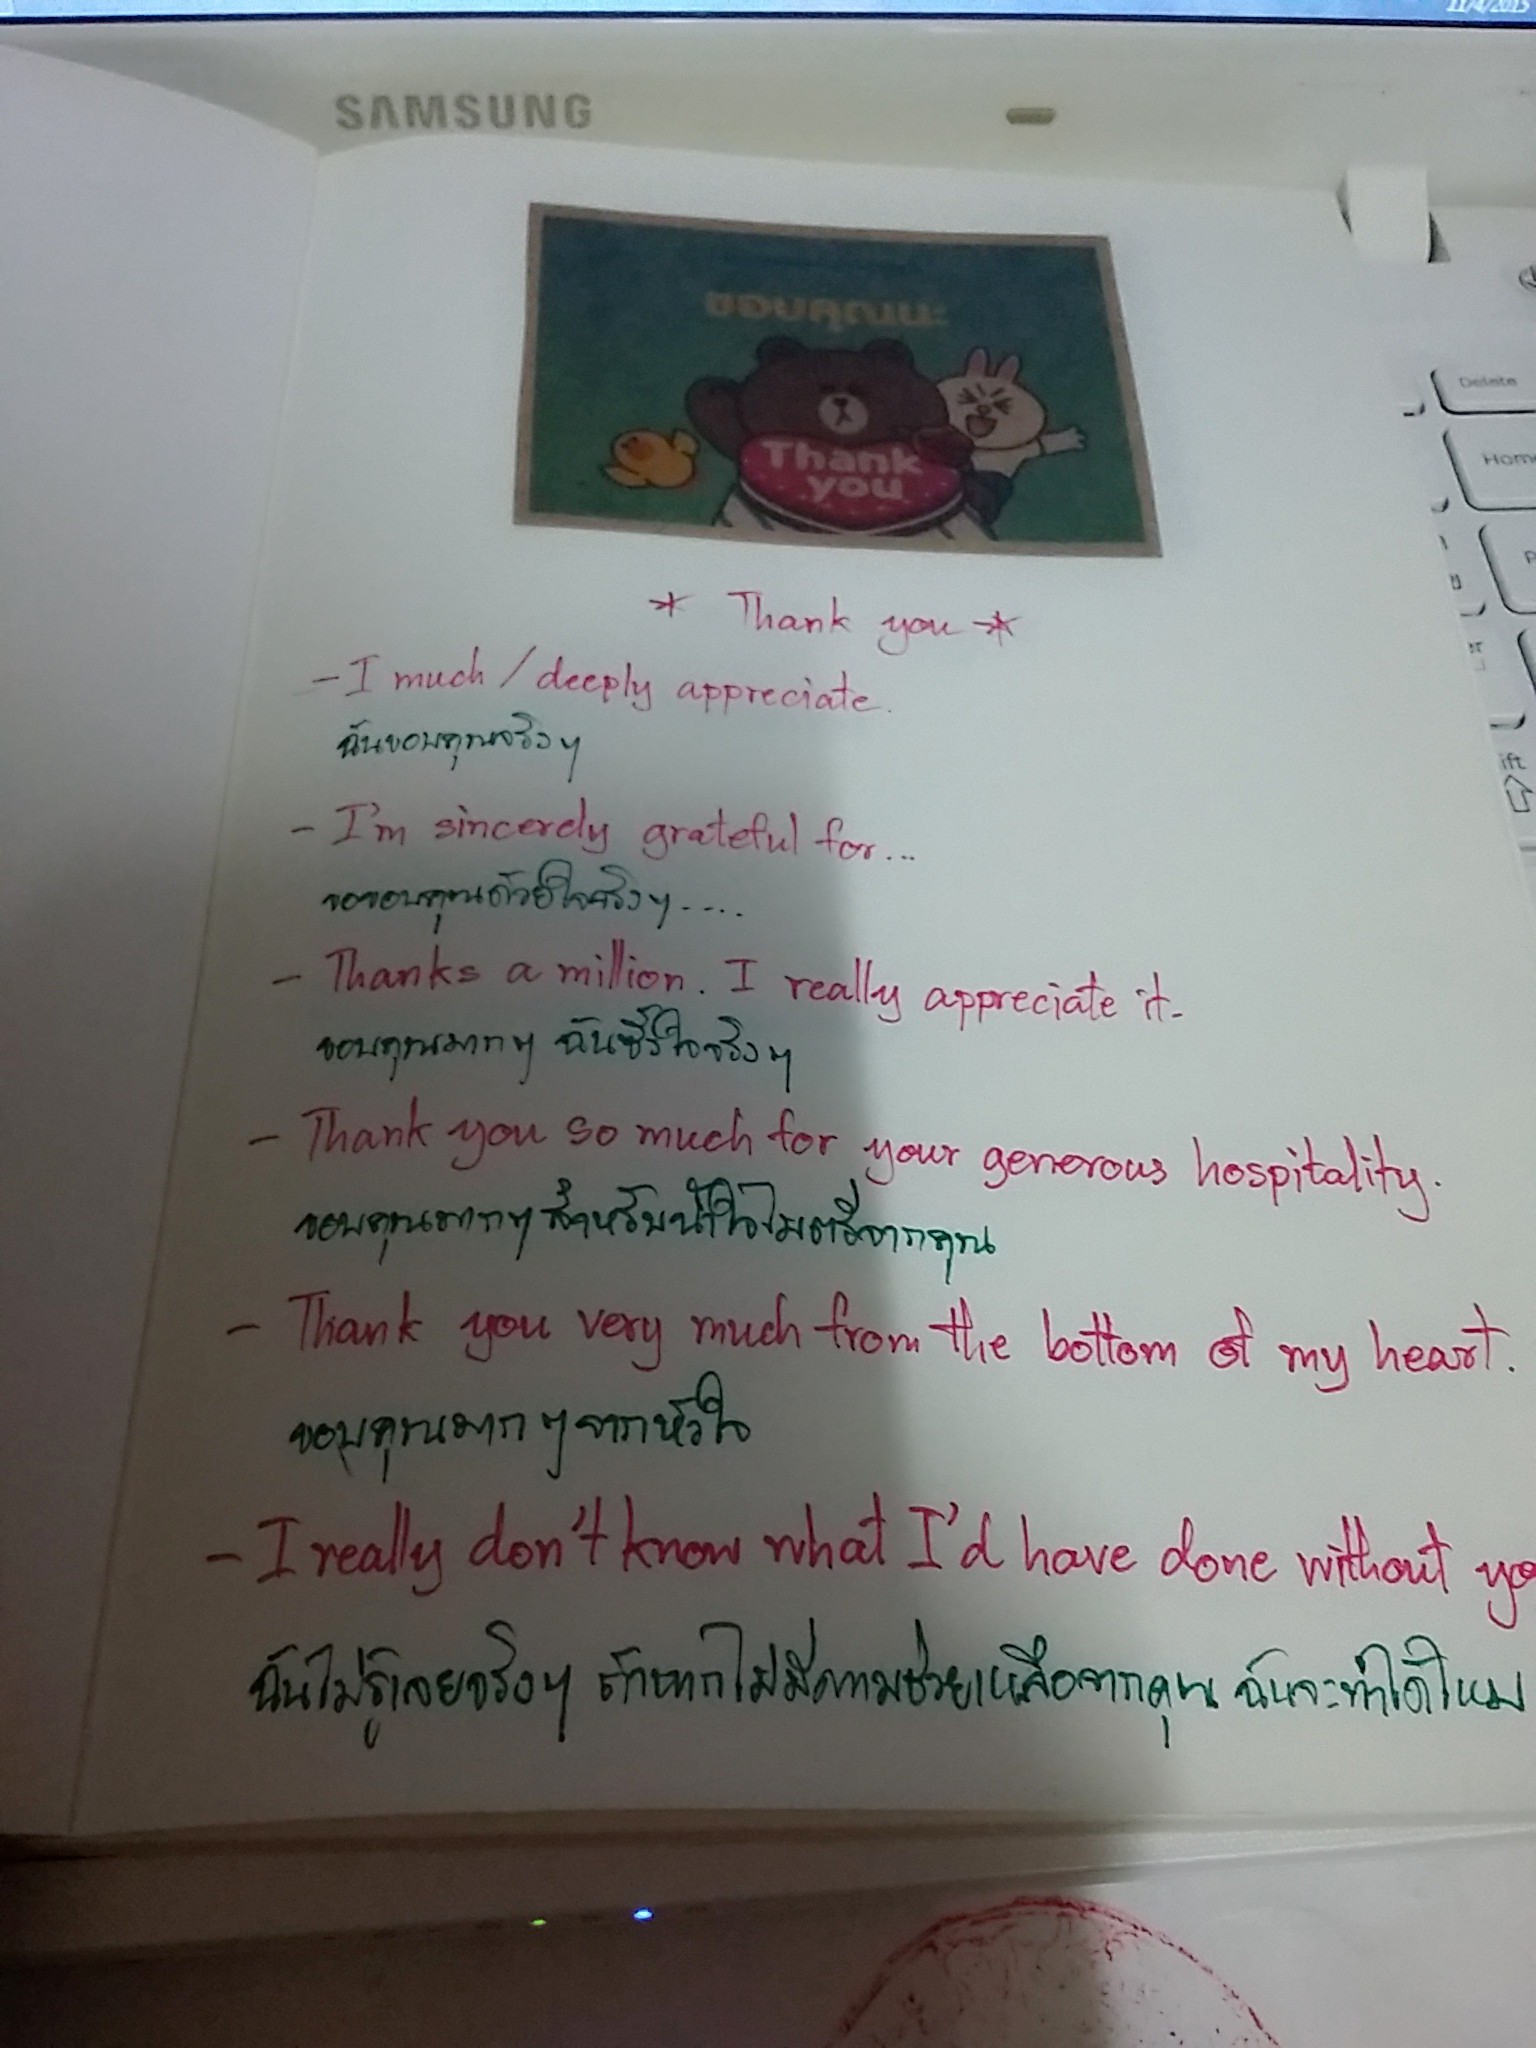 11/4/2015
SAMSUNG
ขอบคุณนะ
Thank
you
Delete
Home
ift
* Thank you *
- I much / deeply appreciate.
ฉันขอบคุณจริงๆ
- I'm sincerely grateful for...
ขอขอบคุณด้วยใจจริงๆ....
- Thanks a million. I really appreciate it.
ขอบคุณมากๆ ฉันซึ้งใจจริงๆ
- Thank you so much for your generous hospitality.
ขอบคุณมากๆ สำหรับน้ำใจไมตรีจากคุณ
- Thank you very much from the bottom of my heart.
ขอบคุณมากๆ จากหัวใจ
- I really don't know what I'd have done without yo
ฉันไม่รู้เลยจริงๆ ถ้าหากไม่มีความช่วยเหลือจากคุณ ฉันจะทำได้ไหม